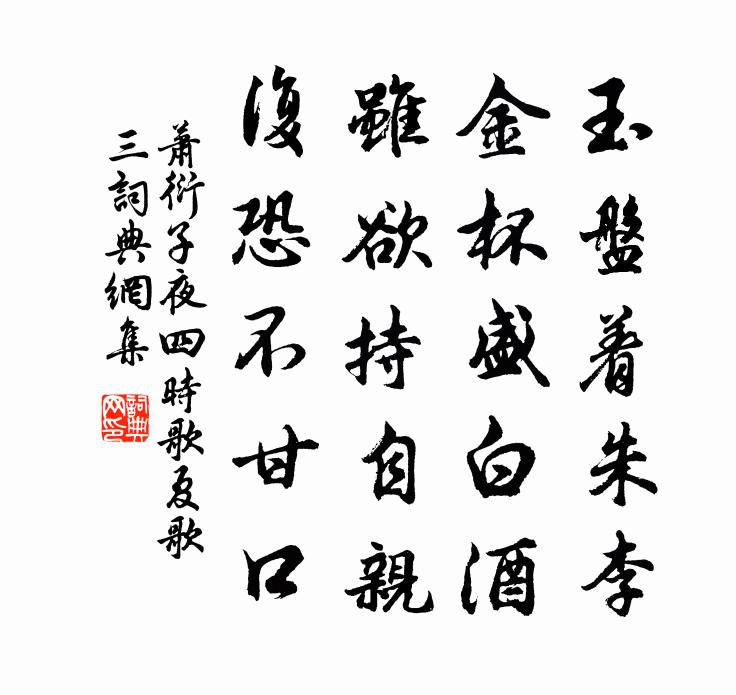 玉盤着朱李
金杯盛白酒
雖欲持自親
復恐不甘口
蕭衍子夜四時歌夏歌
三詞典網集
詞典
网印